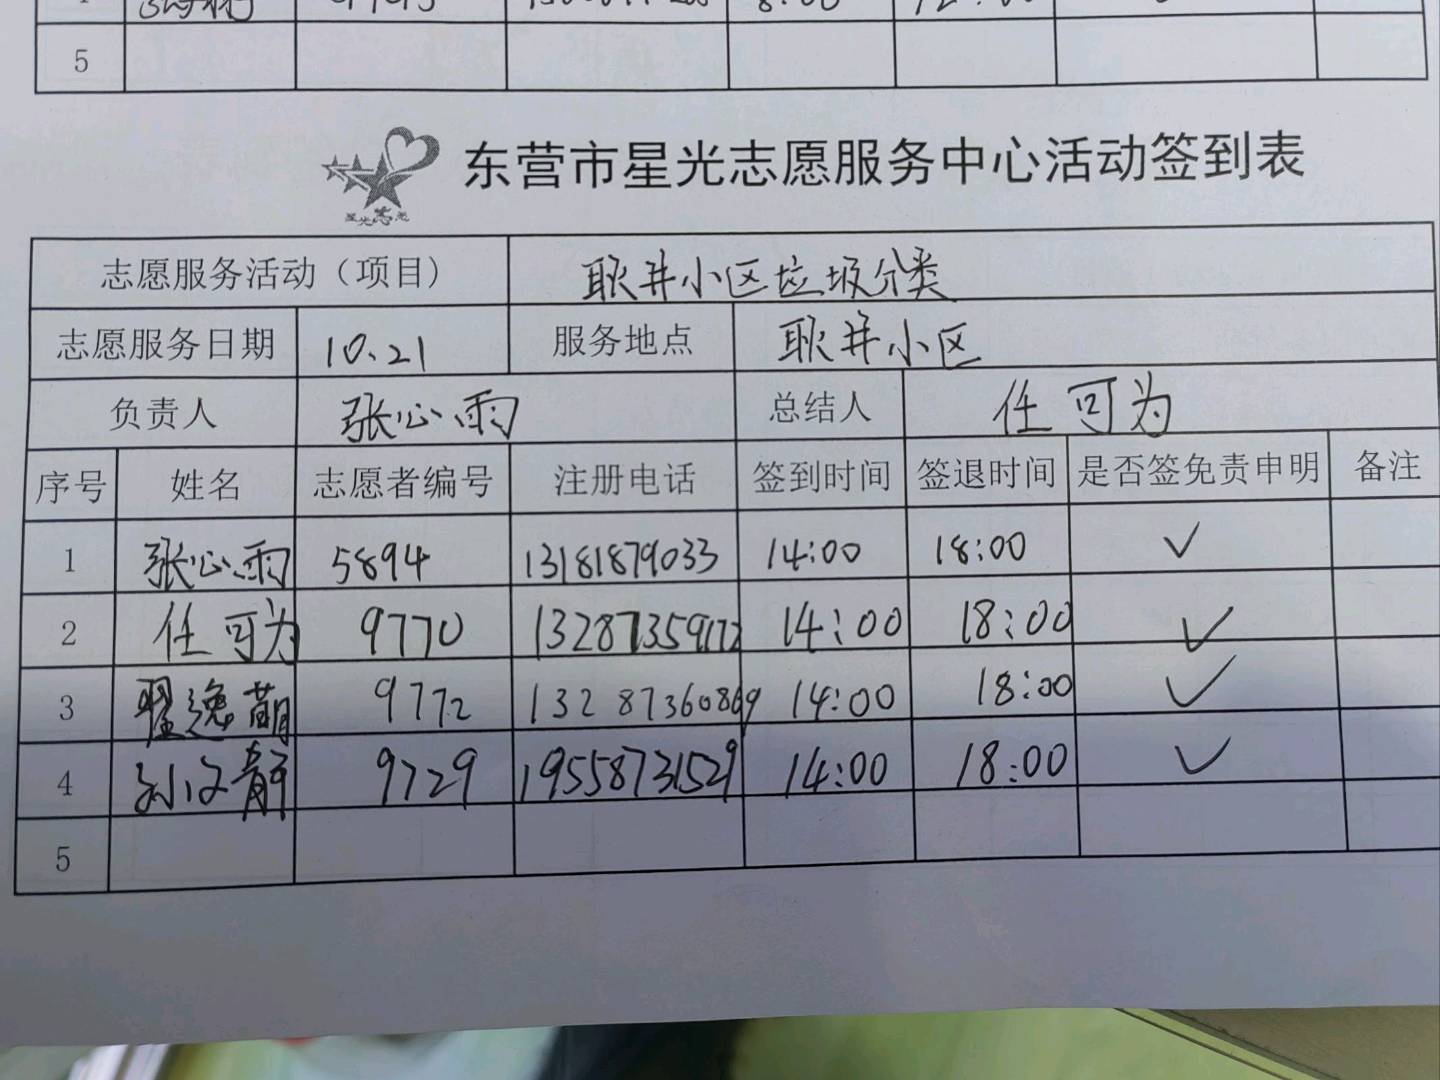 5
星光志愿
东营市星光志愿服务中心活动签到表
志愿服务活动（项目） 耿井小区垃圾分类
志愿服务日期 10.21 服务地点 耿井小区
负责人 张心雨 总结人 任可为
序号 姓名 志愿者编号 注册电话 签到时间 签退时间 是否签免责申明 备注
1 张心雨 5894 13181879033 14:00 18:00 ✓
2 任可为 9770 13287359172 14:00 18:00 ✓
3 翟逸萌 9772 13287360869 14:00 18:00 ✓
4 孙文静 9729 19558731529 14:00 18:00 ✓
5